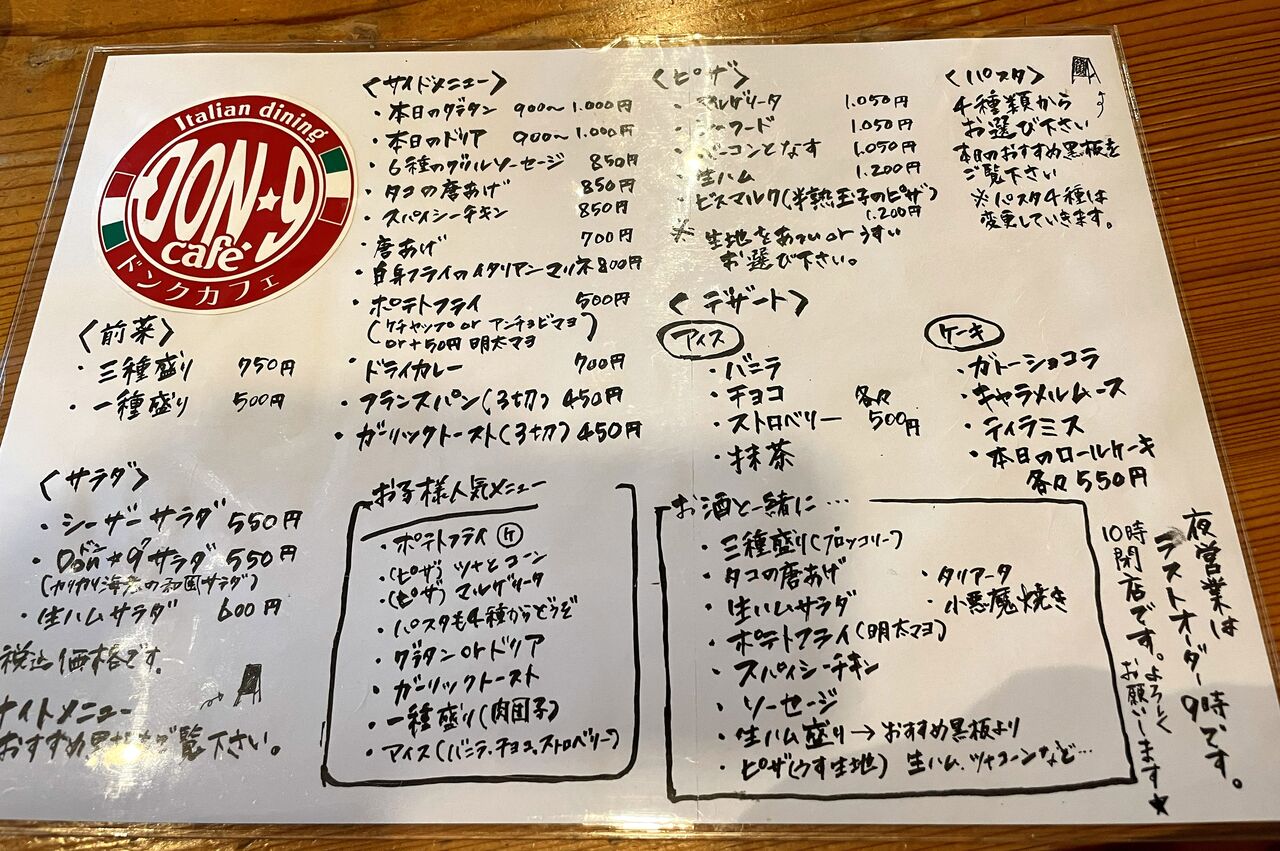 Italian dining
DON★9
café
ドンクカフェ
〈前菜〉
・三種盛り 750円
・一種盛り 500円
〈サラダ〉
・シーザーサラダ 550円
・Don*9サラダ 550円
ドン ク
(カリカリ海老の和風サラダ)
・生ハムサラダ 600円
税込価格です。
ナイトメニュー
おすすめ黒板をご覧下さい。
〈サイドメニュー〉
・本日のグラタン 900〜1.000円
・本日のドリア 900〜1.000円
・6種のグリルソーセージ 850円
・タコの唐あげ 850円
・スパイシーチキン 850円
・唐あげ 700円
・白身フライのイタリアンマリネ 800円
・ポテトフライ 500円
(ケチャップ or アンチョビマヨ)
or +50円 明太マヨ
・ドライカレー 700円
・フランスパン(3切) 450円
・ガーリックトースト(3切) 450円
〈ピザ〉
・マルゲリータ 1.050円
・シーフード 1.050円
・ベーコンとなす 1.050円
・生ハム 1.200円
・ビスマルク(半熟玉子のピザ)
1.200円
※生地をあつい or うすい
お選び下さい。
〈パスタ〉
4種類から
お選び下さい
本日のおすすめ黒板を
ご覧下さい
※パスタ4種は
変更していきます。
〈デザート〉
アイス
・バニラ
・チョコ
・ストロベリー
・抹茶
各々
500円
ケーキ
・ガトーショコラ
・キャラメルムース
・ティラミス
・本日のロールケーキ
各々550円
お子様人気メニュー
・ポテトフライ ケ
・(ピザ) ツナとコーン
・(ピザ) マルゲリータ
・パスタも4種からどうぞ
・グラタン or ドリア
・ガーリックトースト
・一種盛り(肉団子)
・アイス(バニラ・チョコ・ストロベリー)
お酒と一緒に…
・三種盛り(ブロッコリー)
・タコの唐あげ
・生ハムサラダ
・ポテトフライ(明太マヨ)
・スパイシーチキン
・ソーセージ
・生ハム盛り→おすすめ黒板より
・ピザ(うす生地) 生ハム、ツナコーンなど…
・タリアータ
・小悪魔焼き
夜営業は
ラストオーダー9時です。
10時閉店です。よろしく
お願いします★